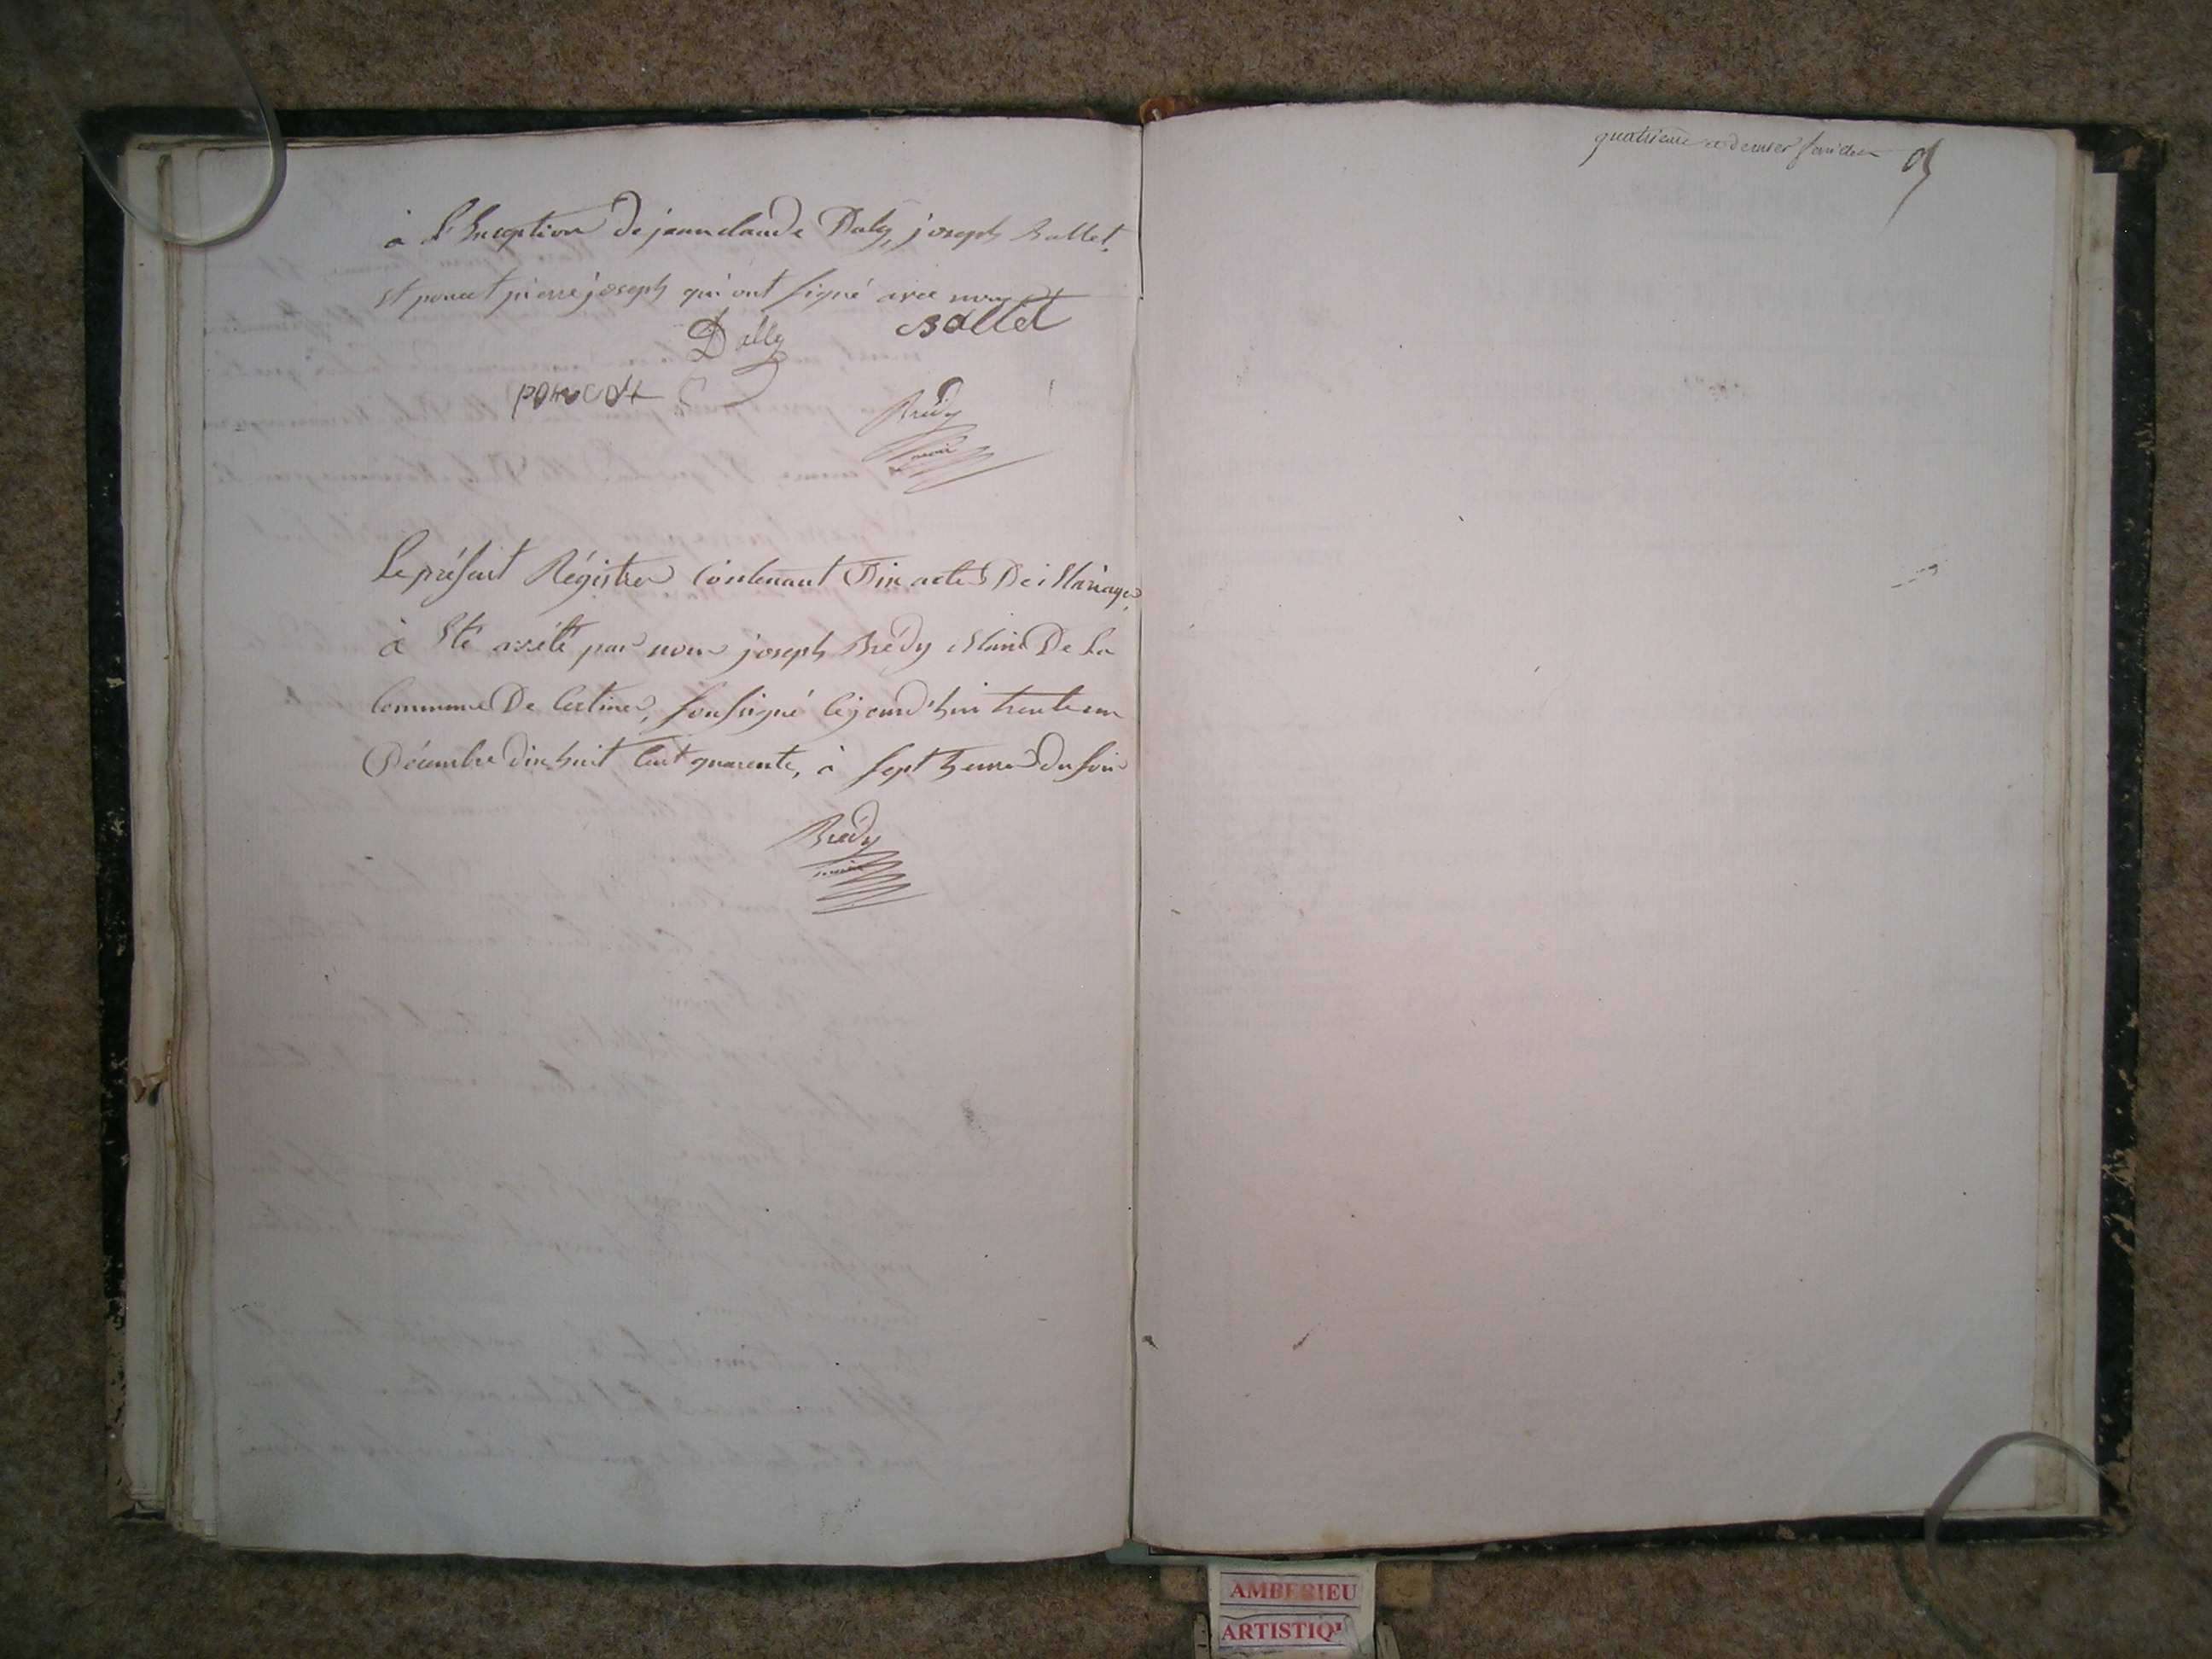 à l'Exception de jean claude Dally, joseph Ballet,
et poncet pierre joseph qui ont signé avec nous
Dally Ballet
poncet
Brédy
maire
Le présent Régistre Contenant Dix actes De Mariage,
à été arrêté par nous joseph Brédy Maire De La
Commune De Certines, soussigné cejourd'hui trente un
Décembre dix huit Cent quarente, à sept heures du soir
Brédy
maire
quatrieme et dernier
AMBERIEU
ARTISTIQ